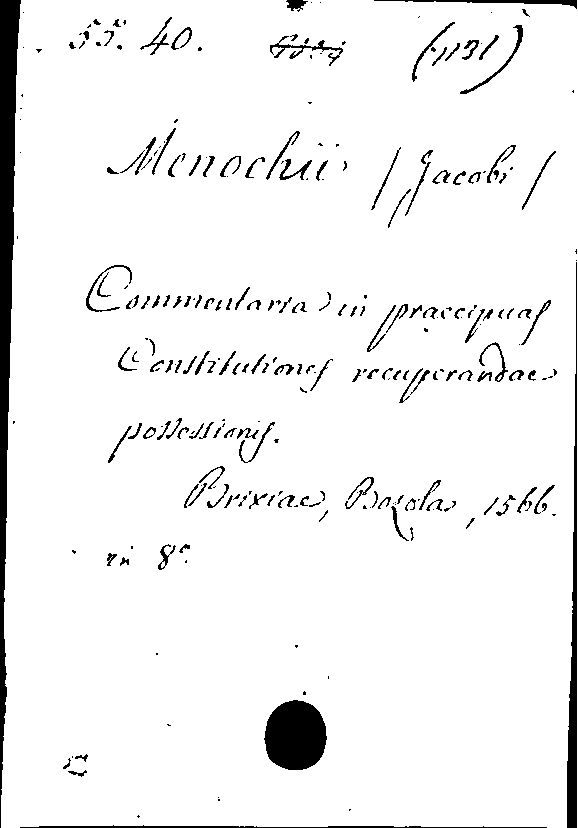 55. 40. (1131)
Menochii / Jacobi /
Commentaria in præcipuas
Constitutiones recuperandae
possessionis.
Brixiae, Bozola, 1566.
in 8°.
C